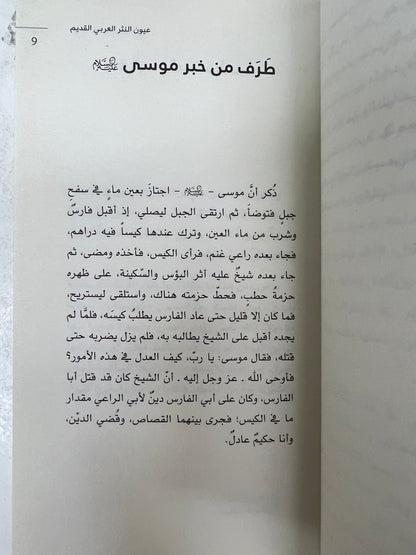 عيون النثر العربي القديم
9
طَرَف من خبر موسى ﷺ
ذُكر أنَّ موسى - ﷺ - اجتازَ بعين ماءٍ في سفح
جبلٍ فتوضأ، ثم ارتقى الجبل ليصلي، إذ أقبل فارسٌ
وشرب من ماء العين، وترك عندها كيساً فيه دراهم،
فجاء بعده راعي غنم، فرأى الكيس، فأخذه ومضى، ثم
جاء بعده شيخٌ عليه أثر البؤس والسّكينة، على ظهره
حزمةُ حطبٍ، فحطّ حزمته هناك، واستلقى ليستريح،
فما كان إلا قليل حتى عاد الفارس يطلبُ كيسَه، فلمَّا لم
يجده أقبل على الشيخ يطالبه به، فلم يزل يضربه حتى
قتله، فقال موسى: يا ربّ، كيف العدل في هذه الأمور؟
فأوحى الله ـ عز وجل إليه ـ أنَّ الشيخ كان قد قتل أبا
الفارس، وكان على أبي الفارس دينٌ لأبي الراعي مقدار
ما في الكيس؛ فجرى بينهما القصاص، وقُضي الديْن،
وأنا حكيمٌ عادلٌ.